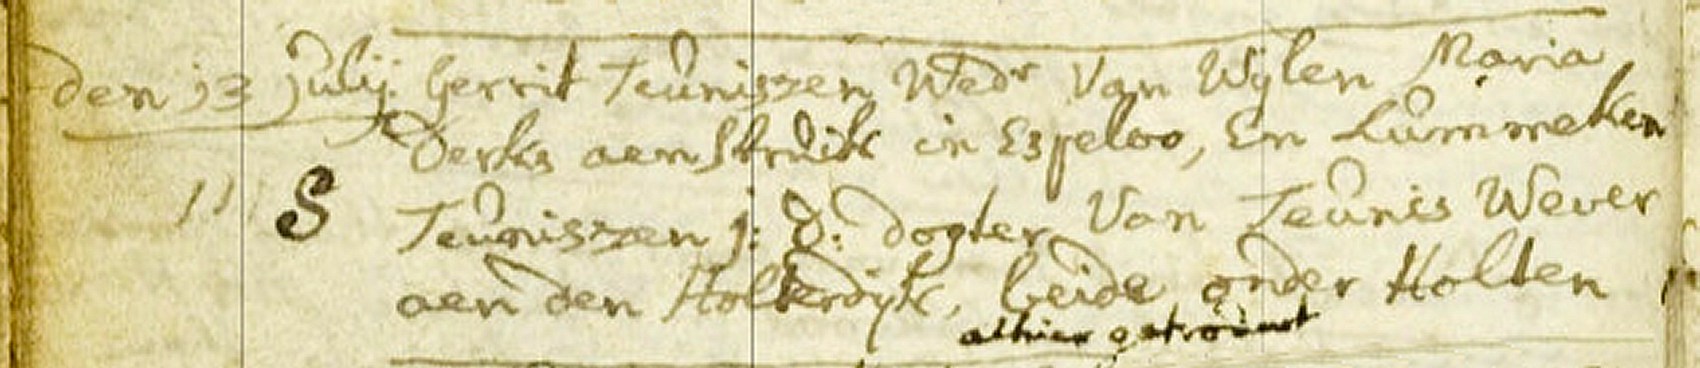 den 13 Julij. Gerrit Teuniszen Wedr Van Wylen Maria
Derks aen Struik in Espeloo, En Lummeken
111 S Teuniszen j: d: dogter Van Teunis Wever
aen den Holterdyk, beide onder Holten
alhier getrouwt